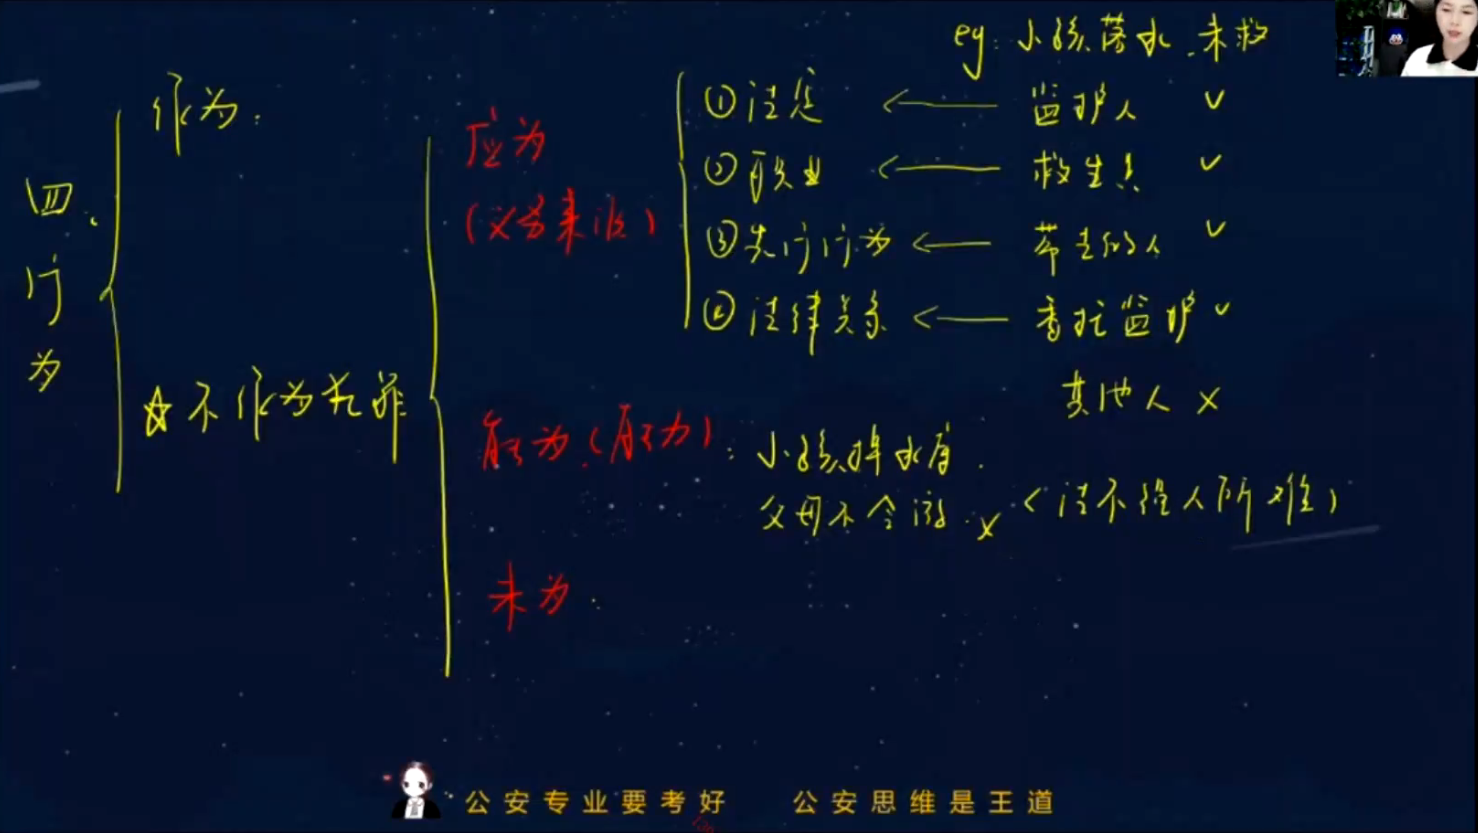 eg: 小孩落水.未救
四、行为
作为:
☆不作为犯罪
应为
(义务来源)
①法定 ← 监护人 ✓
②职业 ← 救生员 ✓
③先行行为 ← 带去的人 ✓
④法律关系 ← 委托监护 ✓
其他人 ×
能为.(能力):小孩掉水库.
父母不会游.×(法不强人所难)
未为.
公安专业要考好 公安思维是王道